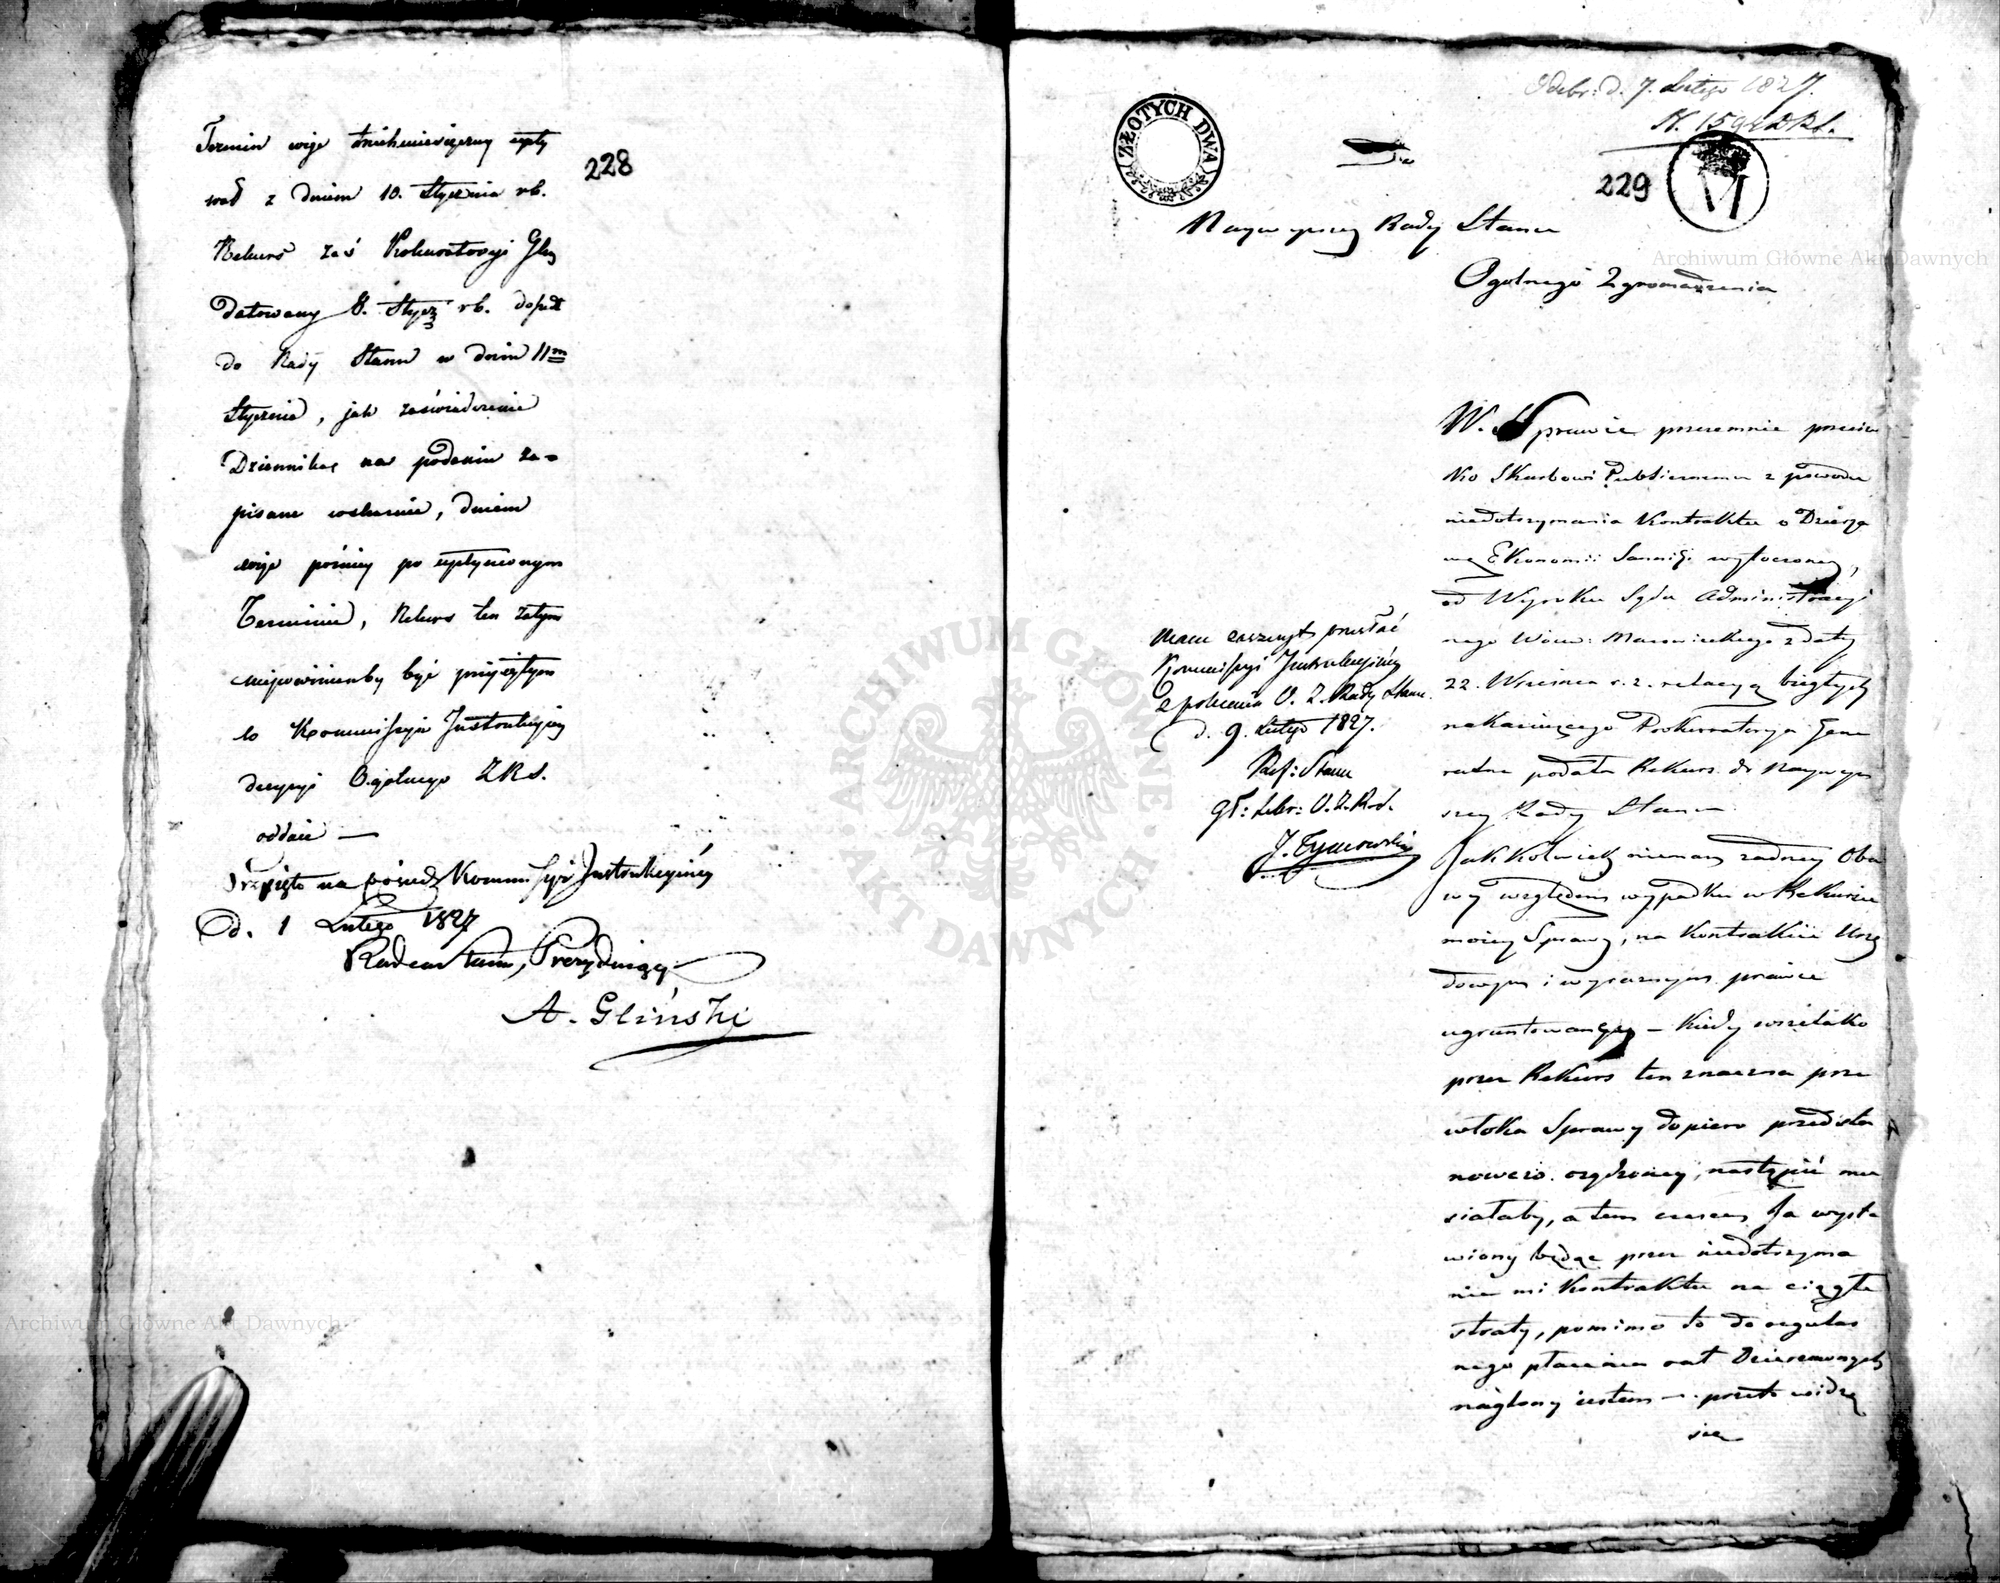 228
Termin więc trzechmiesięczny upły
wał z dniem 10. Stycznia rb.
Rekurs zaś Prokuratoryi Glny
Datowany 8. Stycz rb. doszedł
do Rady Stanu w dniu 11m
Stycznia, jak zaświadczenie
Dziennika na podaniu za-
pisane wskazuie, dniem
więc późniey po upłynionym
Terminie, Rekurs ten zatym
niepowinienby być przyiętym
co Kommissya Instrukcyina
decyzyi Ogólnego ZRS.
oddaie —
Przyięto na posiedz Kommissyi Instrukcyiney
d. 1 Lutego 1827
Radca Stanu, Prezyduiący
A. Gliński
Odebr: d. 7. Lutego 1827.
N. 159
229
ZŁOTYCH DWA
VI
Naywyższey Rady Stanu
Ogolnego Zgromadzenia
Mam zaszczyt przesłać
Kommissyi Instrukcyiney
z polecenia O. Z. Rady Stanu
d. 9. Lutego 1827.
Ref: Stanu
Gł: Sekr: O. Z. R. S.
J. Tymowski
W. Sprawie przezemnie przeciw
ko Skarbowi Publicznemu z powodu
niedotrzymania Kontraktu o Dzierża
wę Ekonomii Sanniki wytoczoney,
od Wyroku Sądu Administracyi
nego Wdzw: Mazowieckiego z daty
22. Września r. z. relacyą biegłych
nakazuiącego Prokuratorya Gene
ralna podała Rekurs do Naywyż
szey Rady Stanu
Jakkolwiek niemam żadney Oba
wy względem wypadku w Rekursie
moiey Sprawy, na Kontrakcie Urzę
dowym i wyraznym prawie
ugruntowaney — Kiedy wszelako
przez Rekurs ten znaczna prze
włoka Sprawy dopiero przedsta
nowczo osądzoney, nastąpić mu
siałaby, a tem czasem Ja wysta
wiony będąc przez niedotrzyma
nie mi Kontraktu na ciągłe
straty, pomimo to do regular
nego płacenia rat Dzierżawnych
naglony iestem — przeto widzę
się
Archiwum Główne Akt Dawnych
Archiwum Główne Akt Dawnych
ARCHIWUM GŁÓWNE AKT DAWNYCH